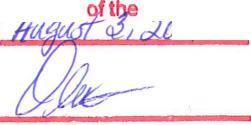 of the
August 3, 20